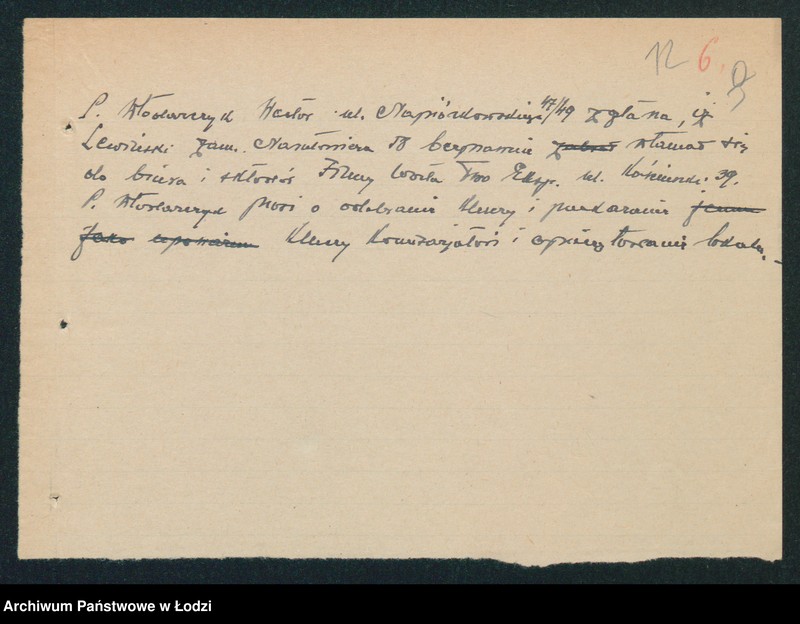 12 6. 9
P. Włodarczyk Wacław ul. Napiórkowskiego 47/49 zgłasza, iż
Lewiński zam. Narutowicza 18 bezprawnie zabrał włamał się
do biura i składów Firmy Two Eksp. ul. Kościuszki 39.
P. Włodarczyk prosi o odebranie kluczy i
jako kluczy i opieczętowanie lokalu. –
Archiwum Państwowe w Łodzi